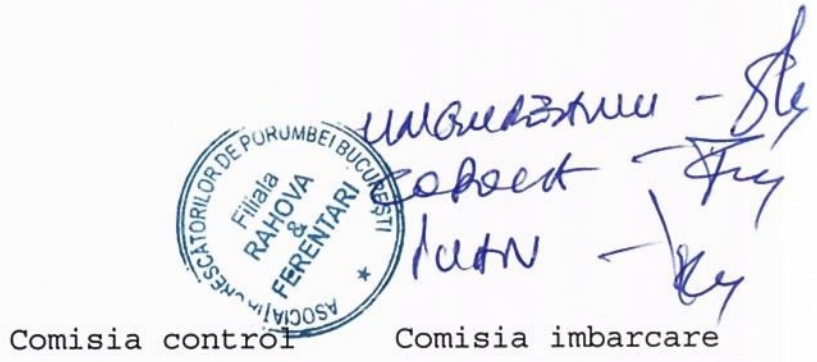 UNGUREANU -
COROLEA -
IVAN -
ASOCIAȚIA CRESCATORILOR DE PORUMBEI BUCUREȘTI
Filiala
RAHOVA
&
FERENTARI
Comisia control Comisia imbarcare